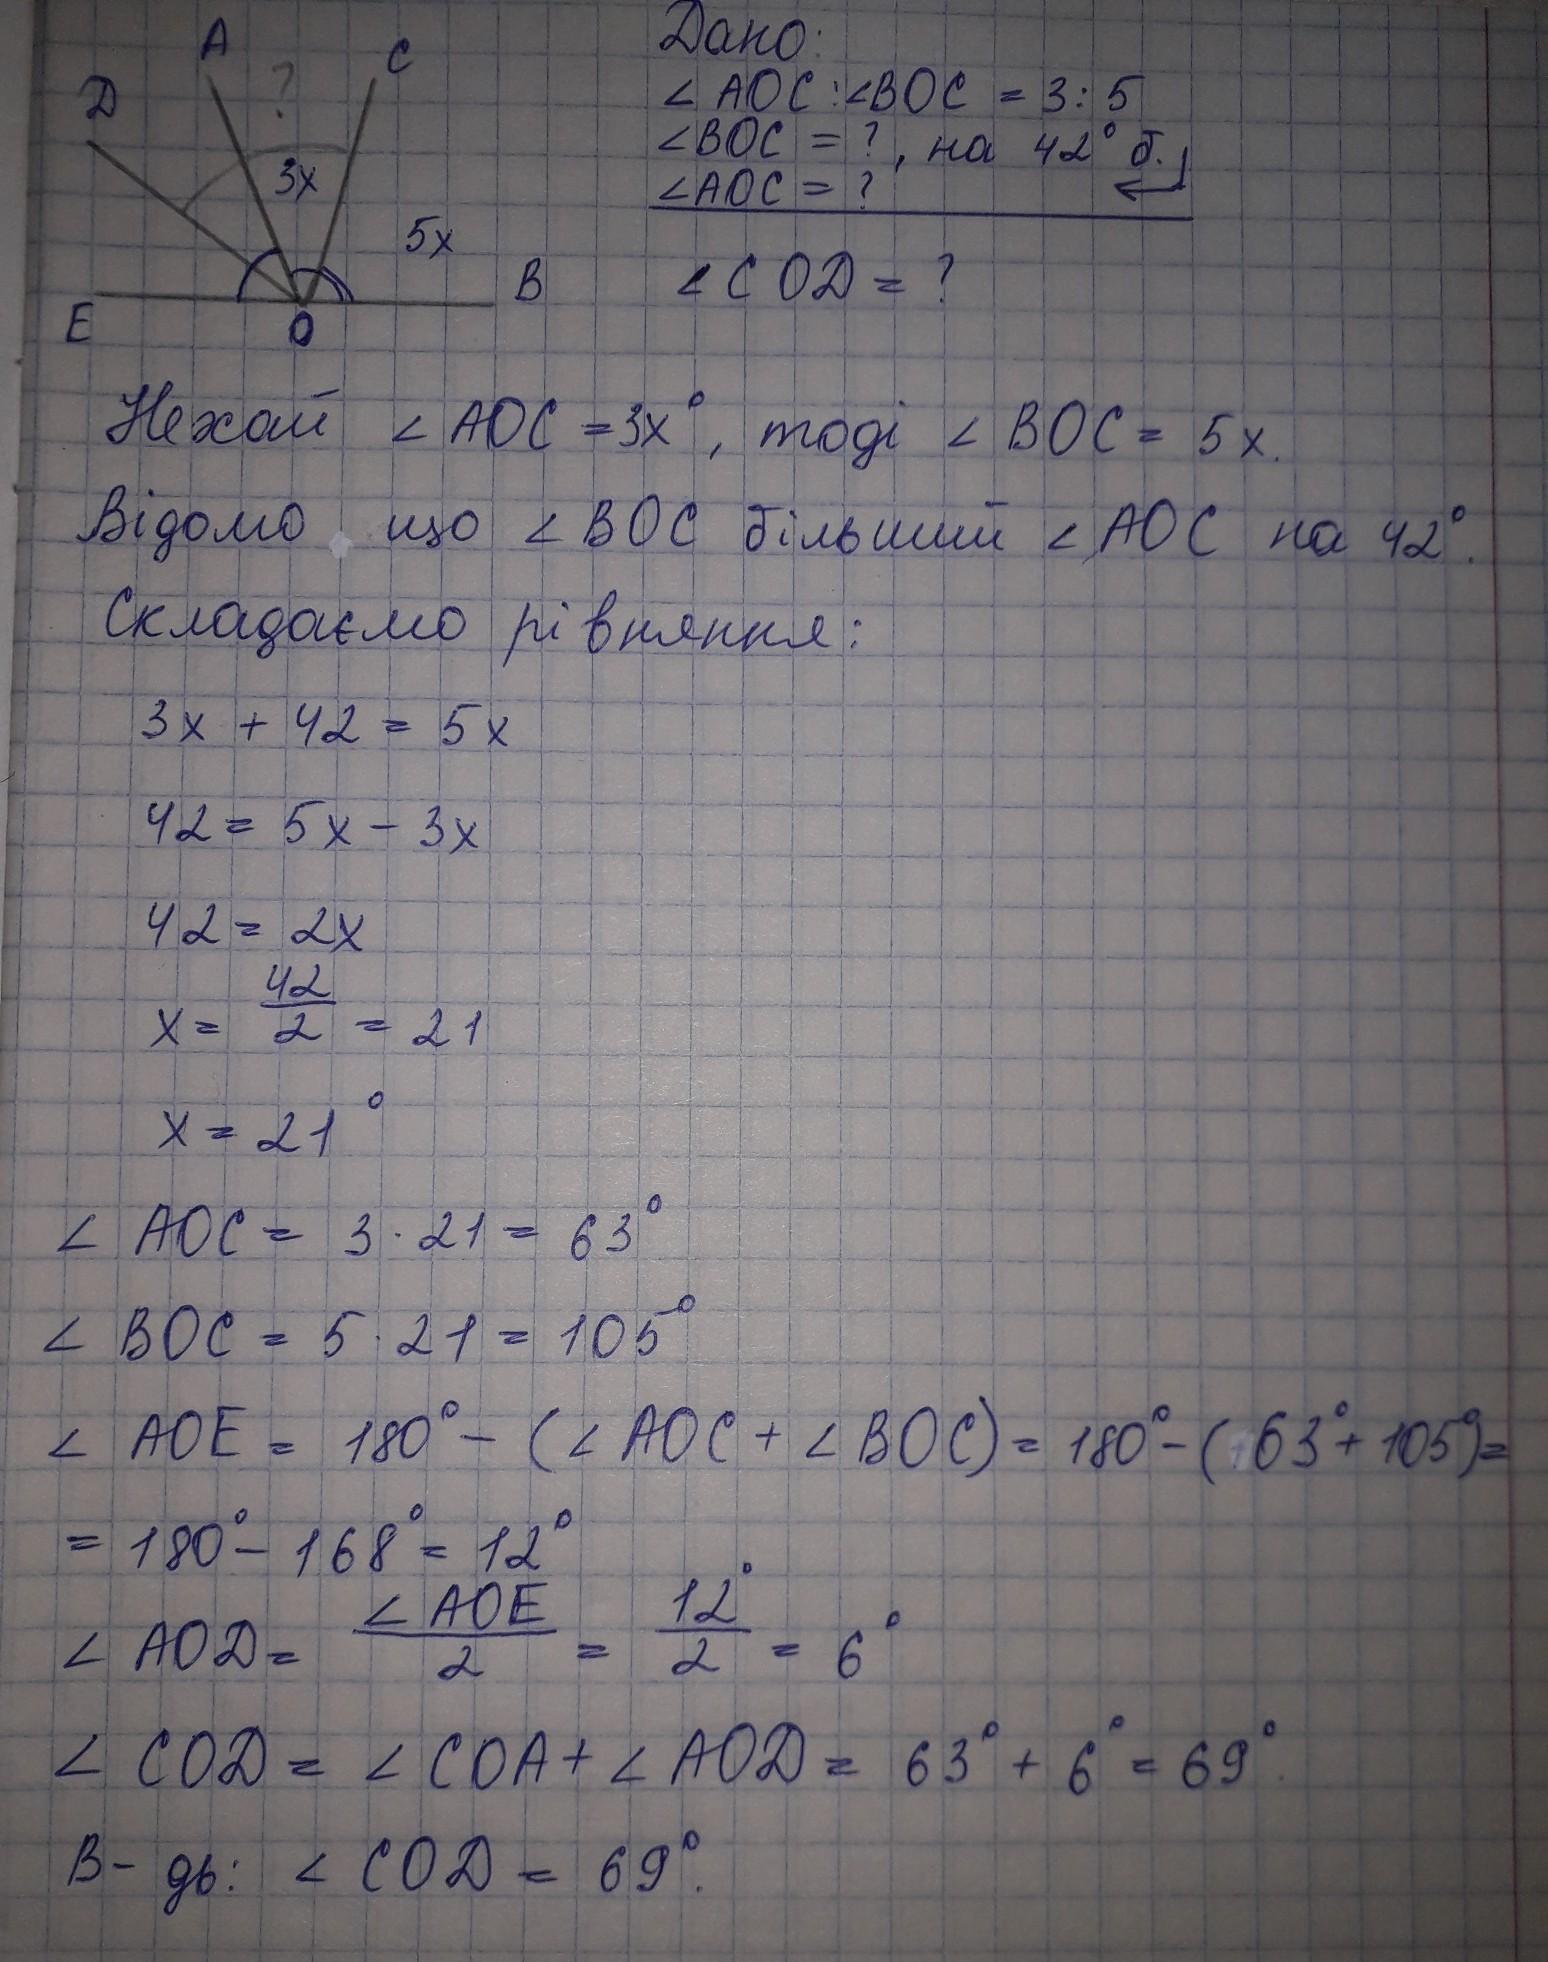 A
?
C
D
3x
5x
E
O
B
Дано:
∠ AOC : ∠BOC = 3 : 5
∠BOC = ?, на 42° б.
∠AOC = ?
∠ COD = ?
Нехай ∠ AOC = 3x°, тоді ∠ BOC = 5x.
Відомо, що ∠ BOC більший ∠ AOC на 42°.
Складаємо рівняння:
3x + 42 = 5x
42 = 5x - 3x
42 = 2x
x = 42/2 = 21
x = 21°
∠ AOC = 3 · 21 = 63°
∠ BOC = 5 · 21 = 105°
∠ AOE = 180° - (∠ AOC + ∠ BOC) = 180° - (63° + 105°) =
= 180° - 168° = 12°
∠ AOD = ∠ AOE/2 = 12°/2 = 6°
∠ COD = ∠ COA + ∠ AOD = 63° + 6° = 69°.
В-дь: ∠ COD = 69°.